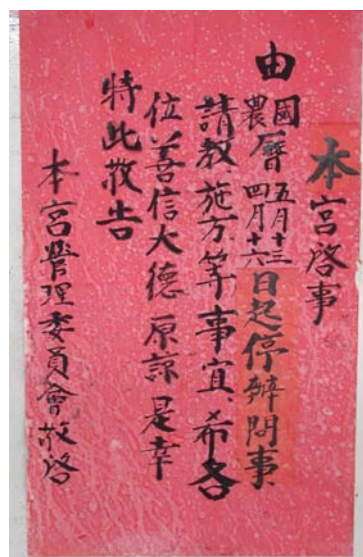 本宮啓事
由國農曆五月十三四月十六日起停辦問事、
請教、施方等事宜、希各
位善信大德原諒是幸
特此敬告
本宮管理委員會敬啓